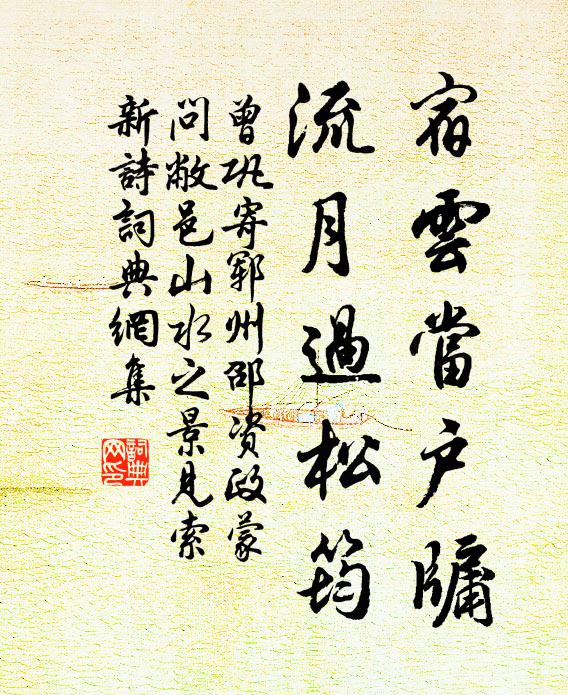 宿雲當户牗
流月過松筠
曾巩寄鄆州邵资政蒙
問敝邑山水之景見索
新詩詞典網集
詞典
网印